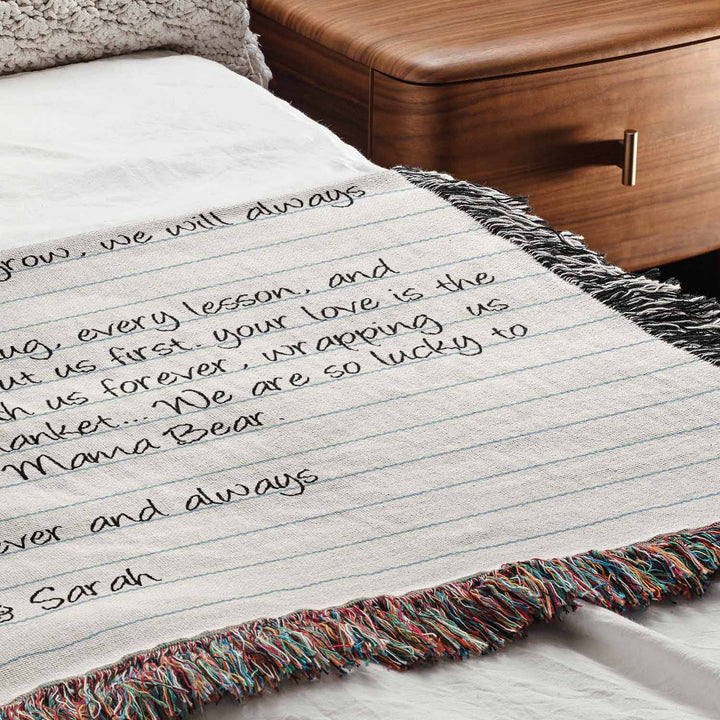 grow, we will always
ug, every lesson, and
ut us first. your love is the
h us forever, wrapping us
lanket... We are so lucky to
Mama Bear.
ever and always
Sarah